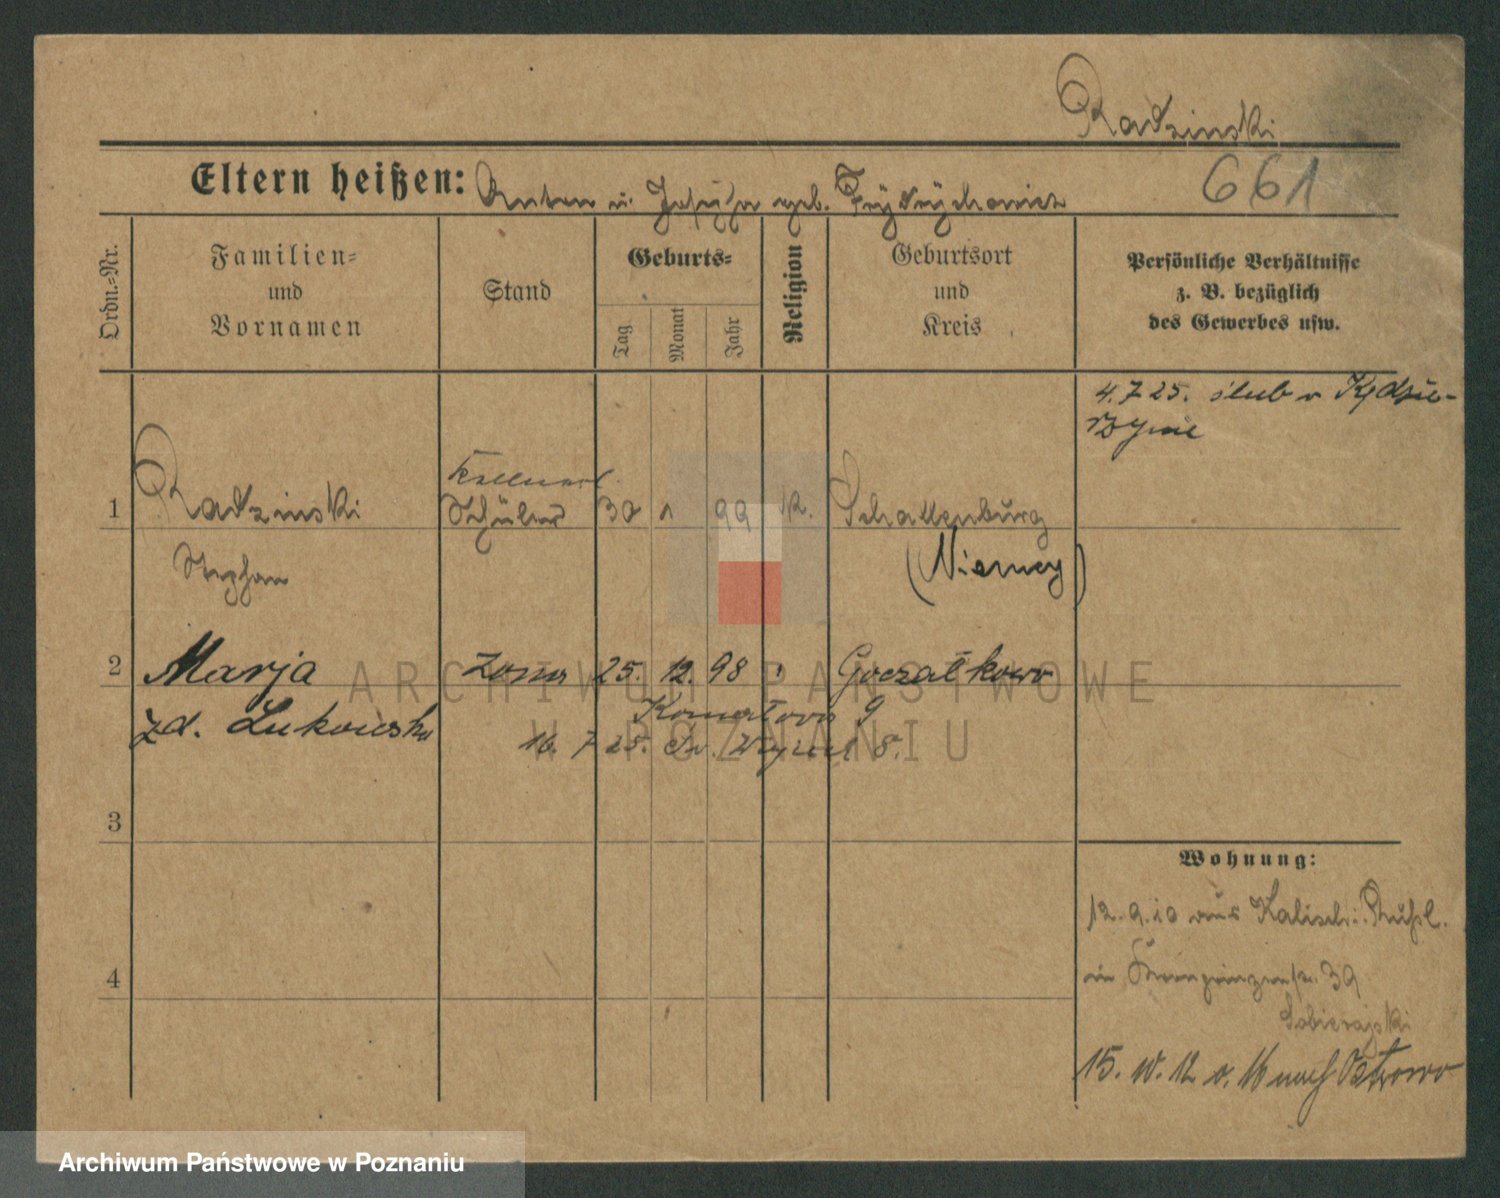 Radzinski
Eltern heißen: Anton u. Josefa geb. Frydrychowicz
661
Ordn.-Nr.
Familien-
und
Vornamen
Stand
Geburts-
Tag
Monat
Jahr
Religion
Geburtsort
und
Kreis
Persönliche Verhältnisse
z. B. bezüglich
des Gewerbes usw.
4. 7 25. ślub w Kędzie-
rzynie
Kellner
1 Radzinski Schüler 30 1 99 k. Schallenburg
Stephan (Niemcy)
2 Marja żona 25. 12. 98 " Goczałkowo
zd. Lukowska
9
16. 7 25. Św. 8.
3
Wohnung:
12. 9. 10 aus Kalisch
in Kronprinzenstr. 39
Sobierajski
4
15. 10. 12 v. 16 nach Ostrowo
ARCHIWUM PAŃSTWOWE
W POZNANIU
Archiwum Państwowe w Poznaniu